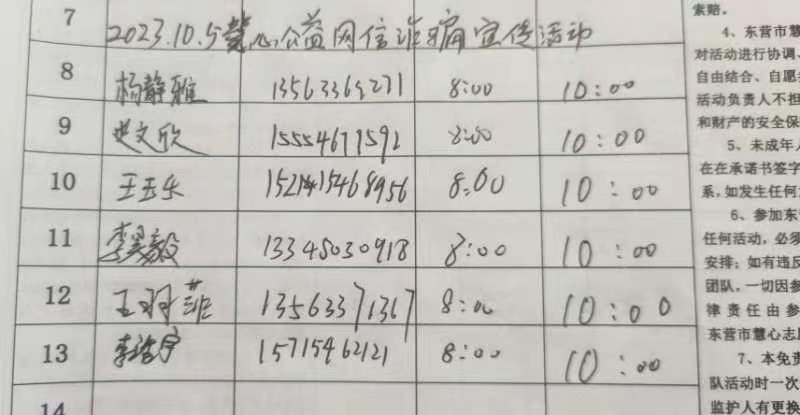 7 2023.10.5慧心公益网信诈骗宣传活动
8 杨静雅 13563369271 8:00 10:00
9 文欣 15554677592 8:00 10:00
10 王玉乐 8:00 10:00
11 李昊毅 13345030918 8:00 10:00
12 王羽菲 13563371367 8:00 10:00
13 李浩宇 15715462121 8:00 10:00
14
索赔。
4、东营市慧
对活动进行协调、
自由结合、自愿
活动负责人不担
和财产的安全保
5、未成年人
在在承诺书签字
系,如发生任何
6、参加东
任何活动,必须
安排;如有违反
团队,一切因参
律责任由参
东营市慧心志
7、本免责
队活动时一次
监护人有更换